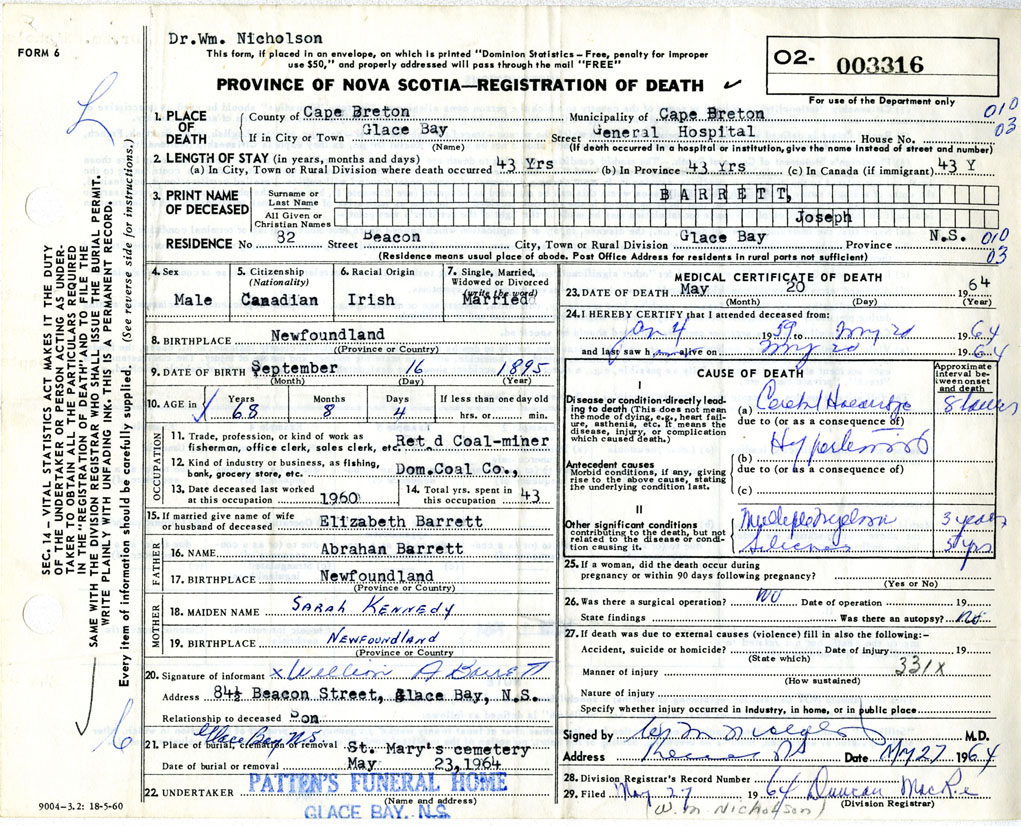 Dr. Wm. Nicholson
FORM 6
This form, if placed in an envelope, on which is printed "Dominion Statistics–Free, penalty for improper
use $50," and properly addressed will pass through the mail "FREE"
02- 003316
PROVINCE OF NOVA SCOTIA—REGISTRATION OF DEATH
For use of the Department only
010
03
1. PLACE OF DEATH
County of Cape Breton Municipality of Cape Breton
If in City or Town Glace Bay Street General Hospital House No.
(Name) (If death occurred in a hospital or institution, give the name instead of street and number)
2. LENGTH OF STAY (in years, months and days)
(a) In City, Town or Rural Division where death occurred 43 Yrs (b) In Province 43 Yrs (c) In Canada (if immigrant) 43 Y
3. PRINT NAME OF DECEASED
Surname or Last Name BARRETT,
All Given or Christian Names Joseph
RESIDENCE No 82 Street Beacon City, Town or Rural Division Glace Bay Province N.S.
010
03
(Residence means usual place of abode. Post Office Address for residents in rural parts not sufficient)
4. Sex Male
5. Citizenship (Nationality) Canadian
6. Racial Origin Irish
7. Single, Married, Widowed or Divorced (write the word) Married
8. BIRTHPLACE Newfoundland
(Province or Country)
9. DATE OF BIRTH September 16 1895
(Month) (Day) (Year)
10. AGE in Years 68 Months 8 Days 4 If less than one day old hrs. or min.
OCCUPATION
11. Trade, profession, or kind of work as fisherman, office clerk, sales clerk, etc. Ret d Coal-miner
12. Kind of industry or business, as fishing, bank, grocery store, etc. Dom.Coal Co.,
13. Date deceased last worked at this occupation 1960
14. Total yrs. spent in this occupation 43
15. If married give name of wife or husband of deceased Elizabeth Barrett
FATHER
16. NAME Abrahan Barrett
17. BIRTHPLACE Newfoundland
(Province or Country)
MOTHER
18. MAIDEN NAME SARAH KENNEDY
19. BIRTHPLACE NEWFOUNDLAND
(Province or Country)
20. Signature of informant x William A Barrett
Address 84½ Beacon Street, Glace Bay, N.S.
Relationship to deceased Son
Glace Bay N.S
21. Place of burial, cremation or removal St. Mary's cemetery
Date of burial or removal May 23,1964
22. UNDERTAKER PATTEN'S FUNERAL HOME
(Name and address)
GLACE BAY, N.S.
9004–3.2: 18-5-60
MEDICAL CERTIFICATE OF DEATH
23. DATE OF DEATH May 20 1964
(Month) (Day) (Year)
24. I HEREBY CERTIFY that I attended deceased from:
Jan 4 1959 to May 20 1964
and last saw him alive on May 20 1964
CAUSE OF DEATH
Approximate interval between onset and death
I
Disease or condition directly leading to death (This does not mean the mode of dying, e.g., heart failure, asthenia, etc. It means the disease, injury, or complication which caused death.)
(a) Cerebral Hemorrhage 8 hours
due to (or as a consequence of)
Hypertension
Antecedent causes
Morbid conditions, if any, giving rise to the above cause, stating the underlying condition last.
(b)
due to (or as a consequence of)
(c)
II
Other significant conditions contributing to the death, but not related to the disease or condition causing it.
Multiple Myeloma 3 years
Silicosis 5 yrs
25. If a woman, did the death occur during pregnancy or within 90 days following pregnancy?
(Yes or No)
26. Was there a surgical operation? No Date of operation 19
State findings Was there an autopsy? No
27. If death was due to external causes (violence) fill in also the following:–
Accident, suicide or homicide? Date of injury 19
(State which)
Manner of injury 331X
(How sustained)
Nature of injury
Specify whether injury occurred in Industry, in home, or in public place
Signed by M.D.
Address Date May 27 1964
28. Division Registrar's Record Number
29. Filed May 27 1964 Duncan MacRae
(Division Registrar)
(W. M. Nicholson)
SEC. 14 – VITAL STATISTICS ACT MAKES IT THE DUTY
OF THE UNDERTAKER OR PERSON ACTING AS UNDER-
TAKER TO OBTAIN ALL THE PARTICULARS REQUIRED
IN THE "REGISTRATION OF DEATH" AND TO FILE THE
SAME WITH THE DIVISION REGISTRAR WHO SHALL ISSUE THE BURIAL PERMIT.
WRITE PLAINLY WITH UNFADING INK. THIS IS A PERMANENT RECORD.
Every item of information should be carefully supplied. (See reverse side for instructions.)
L
6